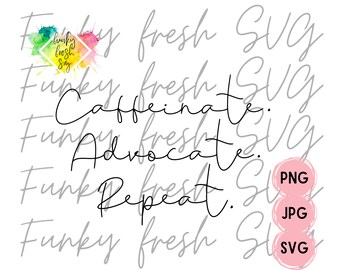 Funky fresh SVG
funky
fresh
svg
Funky fresh SVG
Caffeinate.
Funky fresh SVG
Advocate.
Funky fresh SVG
Repeat.
Funky fresh SVG
Funky fresh SVG
PNG
JPG
SVG